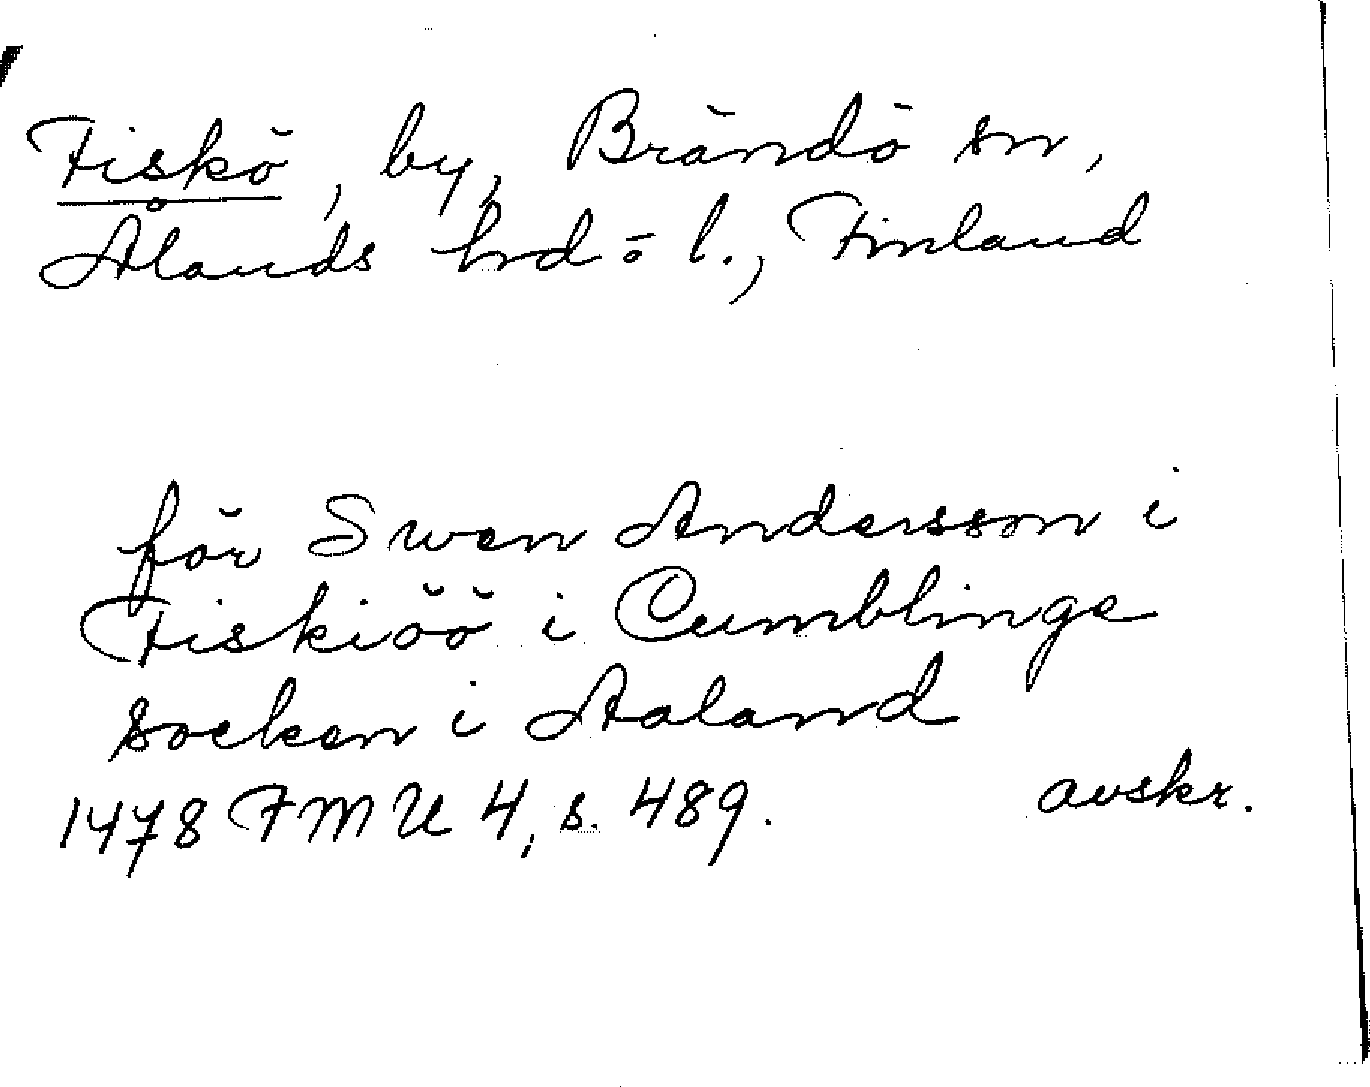 Fiskö, by, Brändö sn,
Ålands hd o l., Finland
för Swen Andersson i
Fiskiöö i Cumblinge
socken i Aaland
1478 FMU 4, s. 489. avskr.